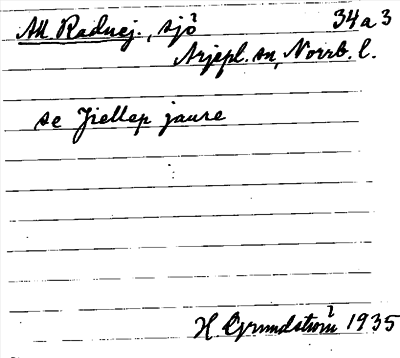 All Raduej., sjö 34 a 3
Arjepl. sn, Norrb. l.
se Jiellep jaure
H. Grundström 1935